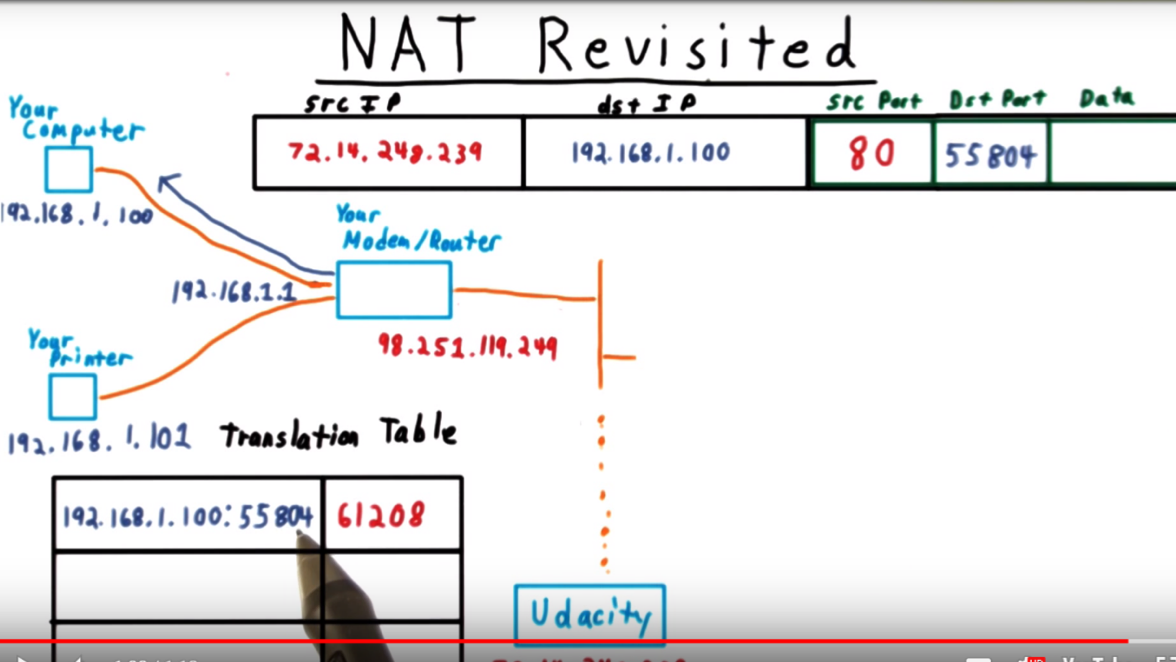 NAT Revisited
src IP
dst IP
Src Port
Dst Port
Data
72.14.248.239
192.168.1.100
80
55804
Your
Computer
192.168.1.100
Your
Modem/Router
192.168.1.1
98.251.119.249
Your
Printer
192.168.1.101
Translation Table
192.168.1.100:55804
61208
Udacity